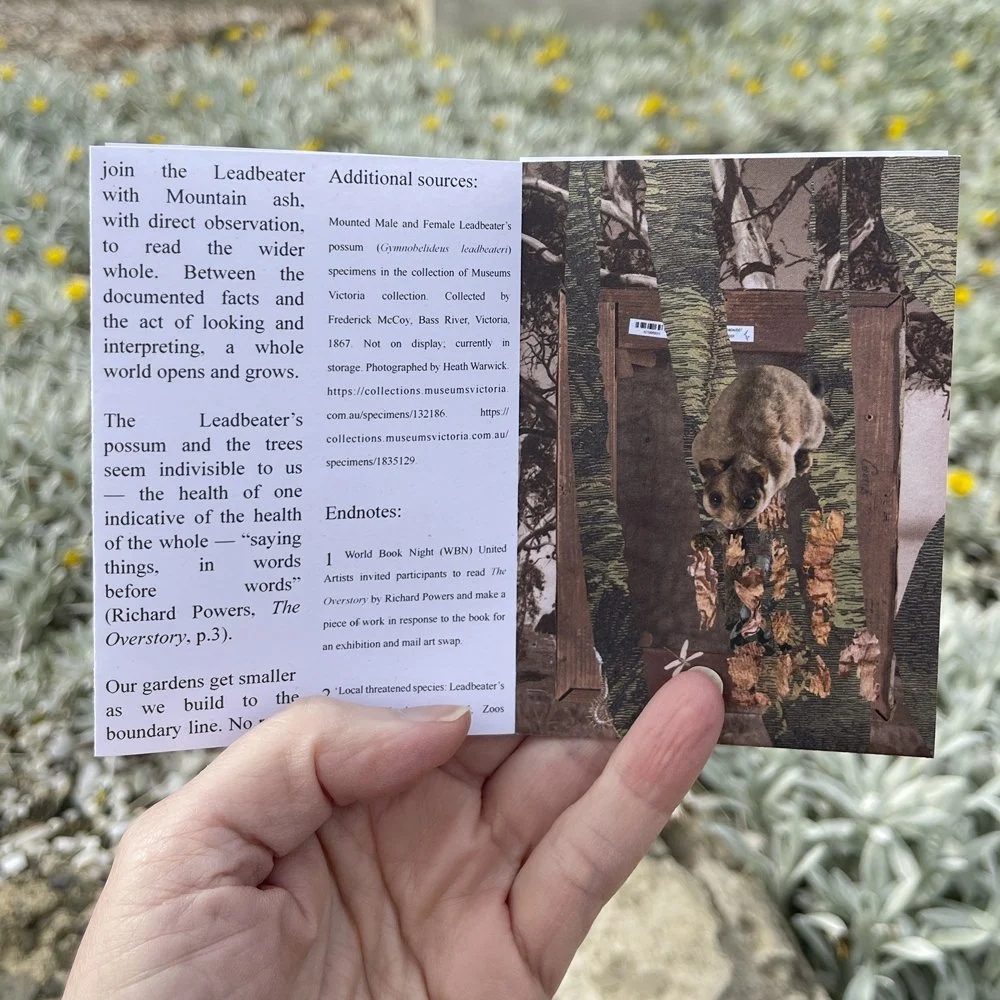 join the Leadbeater
with Mountain ash,
with direct observation,
to read the wider
whole. Between the
documented facts and
the act of looking and
interpreting, a whole
world opens and grows.
The Leadbeater's
possum and the trees
seem indivisible to us
— the health of one
indicative of the health
of the whole — “saying
things, in words
before words”
(Richard Powers, The
Overstory, p.3).
Our gardens get smaller
as we build to the
boundary line. No
Additional sources:
Mounted Male and Female Leadbeater's
possum (Gymnobelideus leadbeateri)
specimens in the collection of Museums
Victoria collection. Collected by
Frederick McCoy, Bass River, Victoria,
1867. Not on display; currently in
storage. Photographed by Heath Warwick.
https://collections.museumsvictoria.
com.au/specimens/132186. https://
collections.museumsvictoria.com.au/
specimens/1835129.
Endnotes:
1 World Book Night (WBN) United
Artists invited participants to read The
Overstory by Richard Powers and make a
piece of work in response to the book for
an exhibition and mail art swap.
2 'Local threatened species: Leadbeater's
Zoos